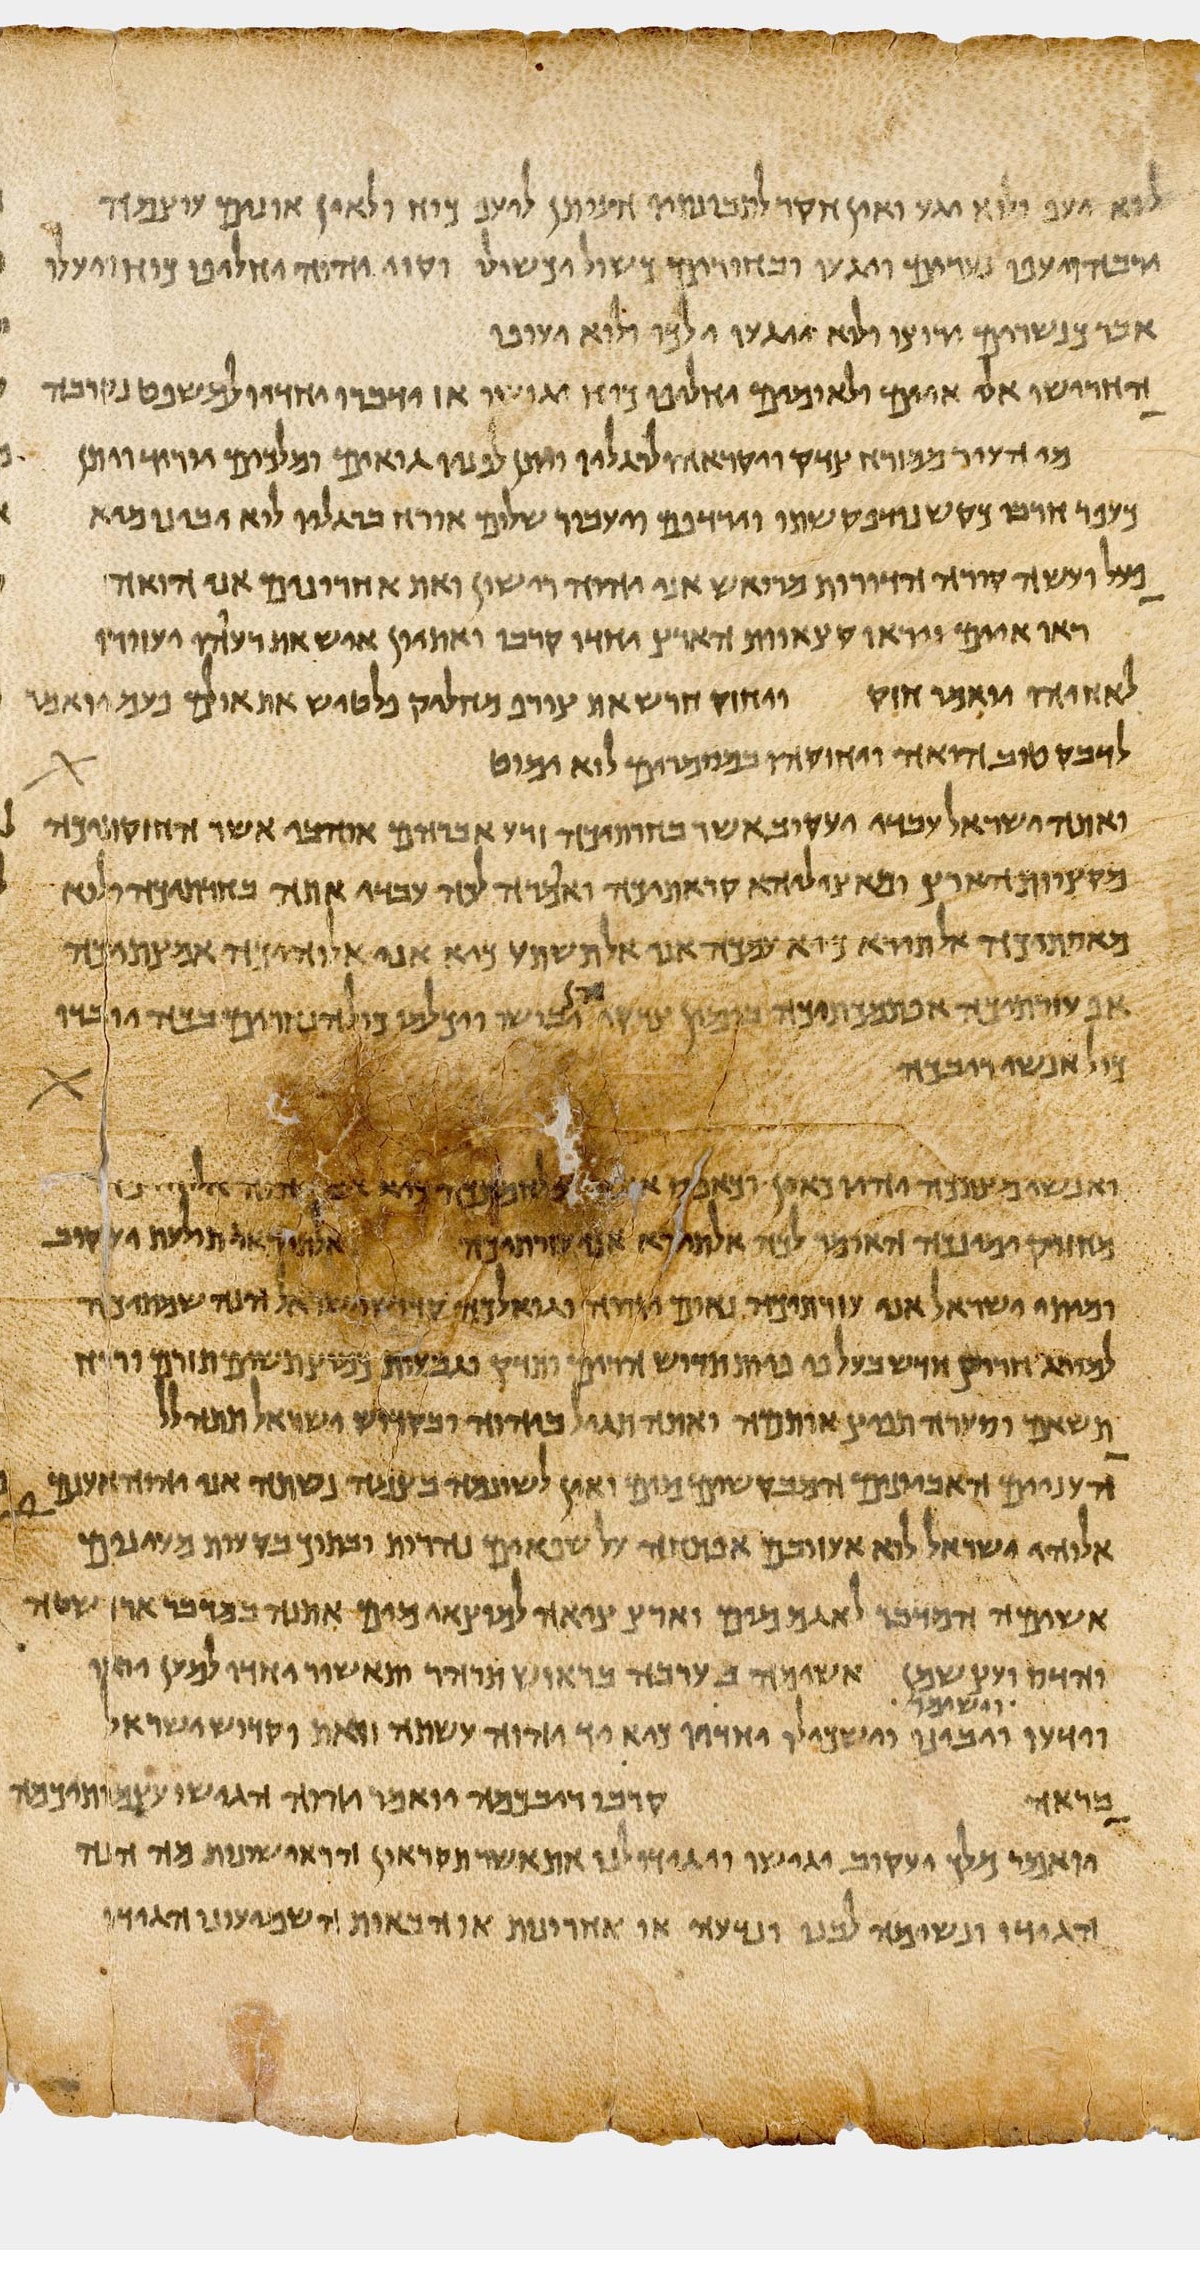 לוא יעף ולוא יגע ואין חקר לתבונתיו הנותן ליעף כוח ולאין אונים עוצמה
ירבה ויעפו נערים ויגעו ובחורים כשול יכשולו וקוי יהוה יחליפו כוח ויעלו
אבר כנשרים ירוצו ולוא ייגעו ילכו ולוא יעופו
החרישו אלי איים ולאומים יחליפו כוח יגושו אז ידברו יחדיו למשפט נקרבה
מי העיר ממזרח צדק ויקראהו לרגליו ויתן לפניו גואים ומלכים יוריד ויתן
כעפר חרבו כקש נודף קשתו וירדפם ויעבור שלום אורח ברגליו לוא יבינו מיא
פעל ועשה קורה הדורות מרואש אני יהוה רישון ואת אחרונים אני הואה
ראו איים ויראו קצאוות הארץ יחדיו קרבו ואתיון איש את רעהו יעזורו
לאחיהו ויאמר חזק ויחזק חרש את צורף מחליק פלטיש את אולם פעם יואמר
לדבק טוב הואה ויחזקהו במסמרים לוא ימוט
ואתה ישראל עבדי יעקוב אשר בחרתיכה זרע אברהם אוהבי אשר החזקתיכה
מקצוות הארץ ומאציליהא קראתיכה ואמרה לכה עבדי אתה בחרתיכה ולוא
מאסתיכה אל תירא כיא עמכה אני אל תשתע כיא אני אלוהיכה אמצתיכה
אף עזרתיכה אף תמכתיכה בימין צדקי הנה יבושו ויכלמו כול הנחרים בכה יובדו
כול אנשי ריבכה
ואנשי מצותכה יהיו כאין וכאפס מלחמתכה כיא אני יהוה
מחזיק ימינכה האומר לכה אל תירא אני עזרתיכה אל תיראי תולעת יעקוב
ומיתי ישראל אני עזרתיכה נאום יהוה וגואלכה קדוש ישראל הנה שמתיכה
למורג חרוץ חדש בעל פיפיות תדוש הרים ותדק וגבעות כמוץ תשים תזרם ורוח
תשאם וסערה תפיץ אותמה ואתה תגיל ביהוה ובקדוש ישראל תתהלל
העניים האביונים המבקשים מים ואין לשונמה בצמה נשתה אני יהוה אענם
אלוהי ישראל לוא אעזובם אפתחה על שפאים נהרות ובתוך בקעות מעינים
אשימה המדבר לאגם מים וארץ ציאה למוצאי מים אתנה במדבר ארז שטה
והדס ועץ שמן אשימה בערבה ברואש תדהר ותאשור יחדו למען יראו
וישימו
וידעו ויבינו וישכילו יחדיו כיא יד יהוה עשתה זואת וקדוש ישראל
בראה קרבו ריבכמה יואמר יהוה הגישו עצמותיכמה
יואמר מלך יעקוב יגישו ויגידו לנו את אשר תקראין הראישונות מה הנה
הגידו ונשימה לבנו ונדעה או אחרונות או הבאות השמיעונו הגידו